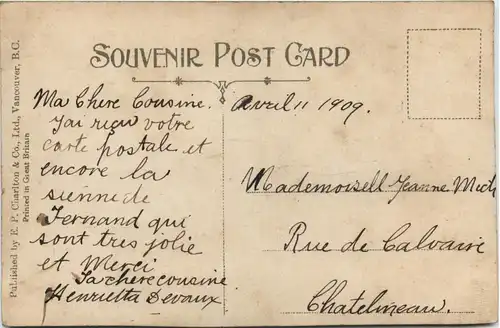 SOUVENIR POST CARD
Ma Chere Cousine.
J'ai rieu votre
carte postale et
encore la
sienne de
Fernand qui
sont tres jolie
et Merci
Sa chere cousine
Henrietta Devaux
Avril 11 1909.
Mademoisell Jeanne Mich
Rue de Calvaire
Chatelineau.
Published by E. P. Charlton & Co., Ltd., Vancouver, B.C.
Printed in Great Britain